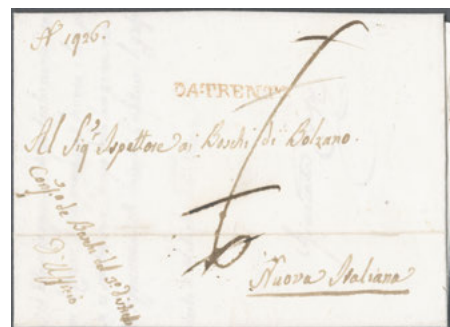 N 1926.
DA TRENTO
Al Sig.r Ispettore ai Boschi di Bolzano.
de Boschi
D'Uffizio
Nuova Italiana